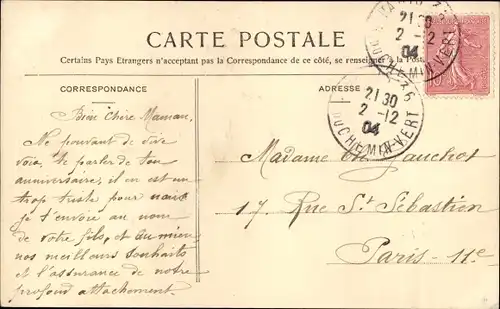 CARTE POSTALE
Certains Pays Etrangers n'acceptant pas la Correspondance de ce côté, se renseigner à la Poste
CORRESPONDANCE
Bien Chère Maman,
Ne pouvant de vive
voix te parler de ton
anniversaire, il en est un
trop triste pour nous
je t'envoie au nom
de votre fils, et au mien
nos meilleurs souhaits
et l'assurance de notre
profond attachement.
ADRESSE
21 30
2 - 12
04
21 30
2 - 12
04
DU CHEMIN-VERT
Madame Gauchot
17. Rue St Sébastien
Paris - 11e